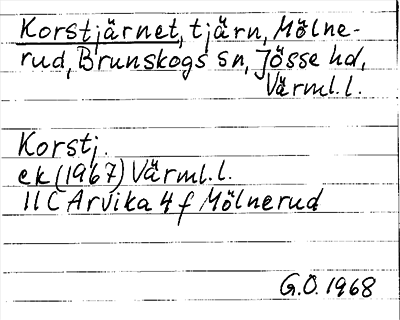 Korstjärnet, tjärn, Mölne-
rud, Brunskogs sn, Jösse hd,
Värml. l.
Korstj.
ek (1967) Värml. l.
11C Arvika 4 f Mölnerud
G.O. 1968